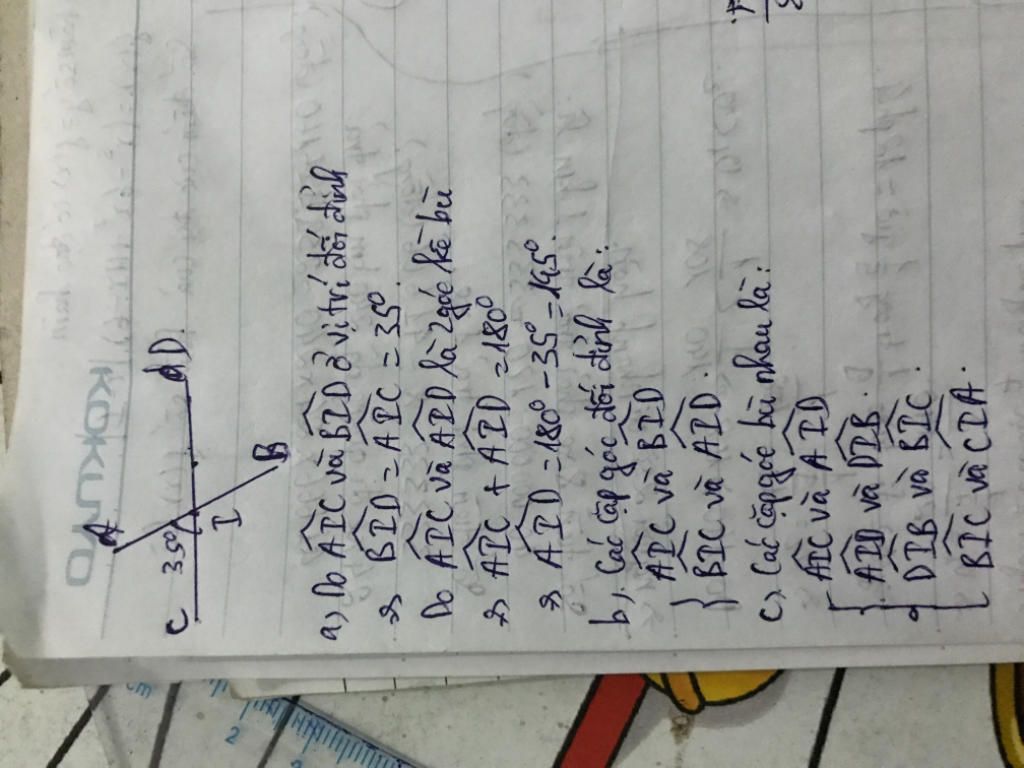 KOKUYO
A
D
C
35°
I
B
a) Do AIC và BID ở vị trí đối đỉnh
=> BID = AIC = 35°.
Do AIC và AID là 2 góc kề bù
=> AIC + AID = 180°
=> AID = 180° - 35° = 145°.
b). Các cặp góc đối đỉnh là:
AIC và BID
BIC và AID.
c). Các cặp góc bù nhau là:
AIC và AID
AID và DIB.
DIB và BIC.
BIC và CIA.
cm
2